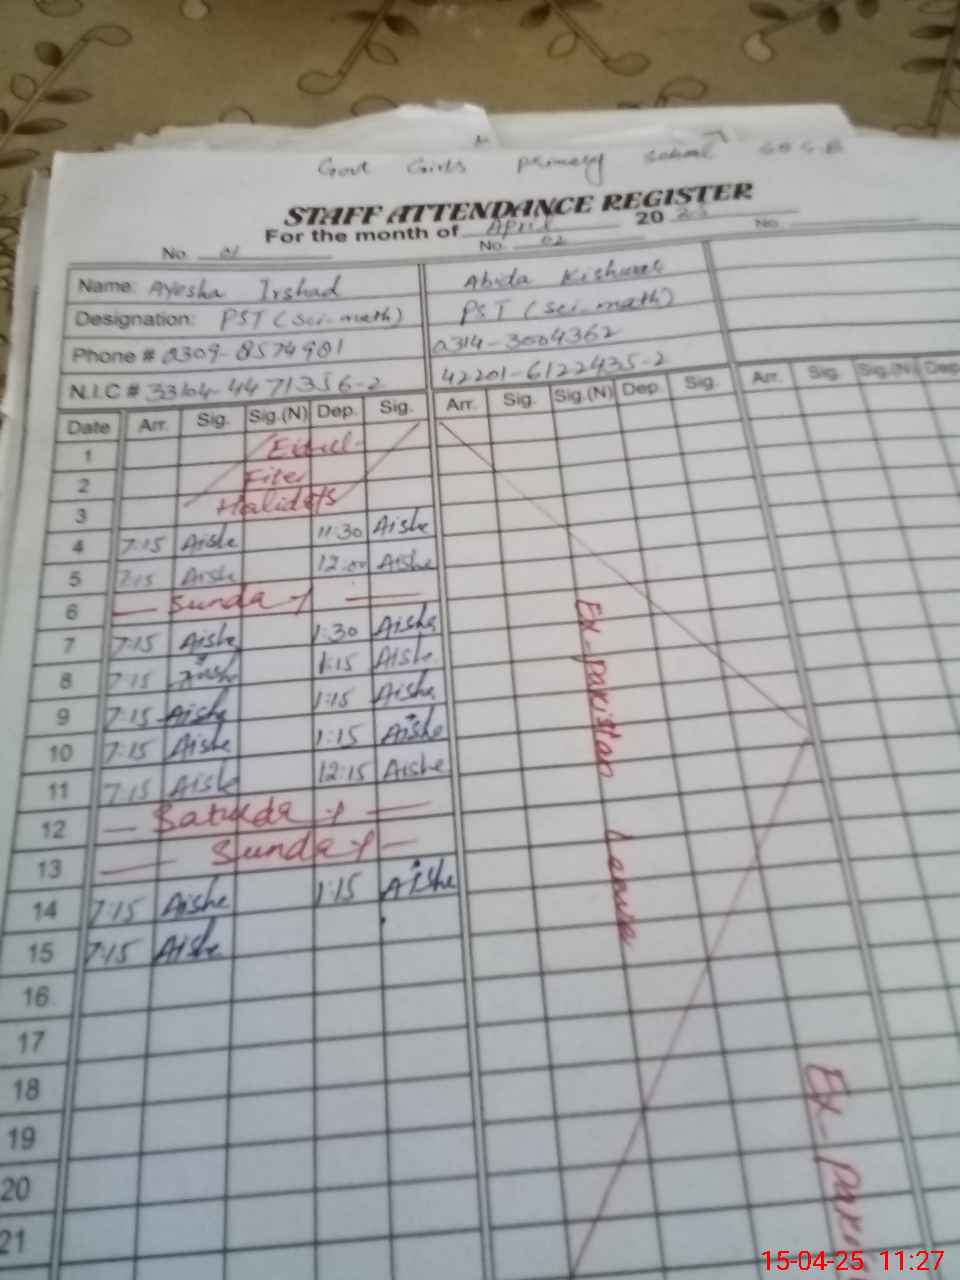 Govt Girls primary school
STAFF ATTENDANCE REGISTER
For the month of April 20 25
No. 01 No. 02 No.
Name: Ayesha Irshad Abida Kishwar
Designation: PST (Sci-math) PST (Sci-math)
Phone # 0309-8574901 0314-3004362
N.I.C # 33104-4471356-2 42201-6122435-2
Date Arr. Sig. Sig.(N) Dep. Sig. Arr. Sig. Sig.(N) Dep. Sig. Arr. Sig. Sig.(N) Dep.
1 Eidul-
2 Fiter
3 Halidays
4 7:15 Aishe 11:30 Aishe
5 7:15 Aishe 12:00 Aishe
6 Sunday
7 7:15 Aishe 1:30 Aishe
8 7:15 Aishe 1:15 Aishe
9 7:15 Aishe 1:15 Aishe
10 7:15 Aishe 1:15 Aishe
11 7:15 Aishe 12:15 Aishe
12 Saturday
13 Sunday
14 7:15 Aishe 1:15 Aishe
15 7:15 Aishe
16
17
18
19
20
21
Ex-Pakistan Leave
Ex-Paki
15-04-25 11:27